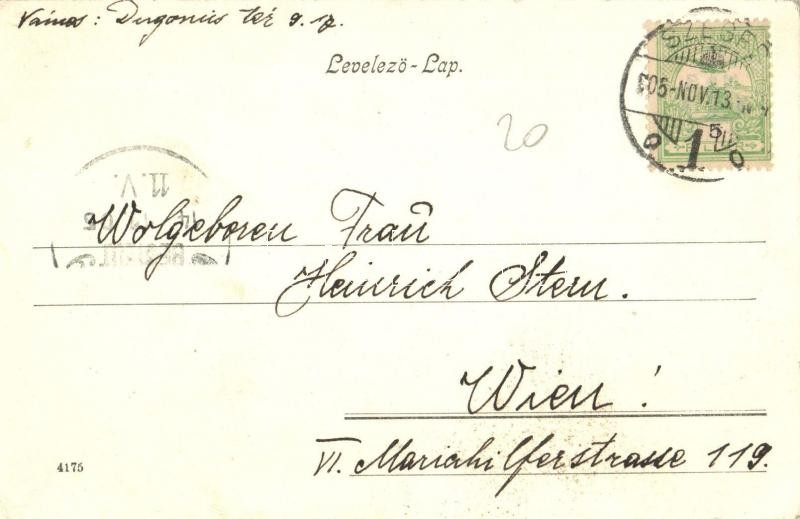 Dugonics tér 9. sz.
Levelező-Lap.
SZEGED
905-NOV.13.
5
1
20
11.V.
BESTELLT
Wolgeboren Frau
Heinrich Stern.
Wien!
VI. Mariahilferstrasse 119.
4175